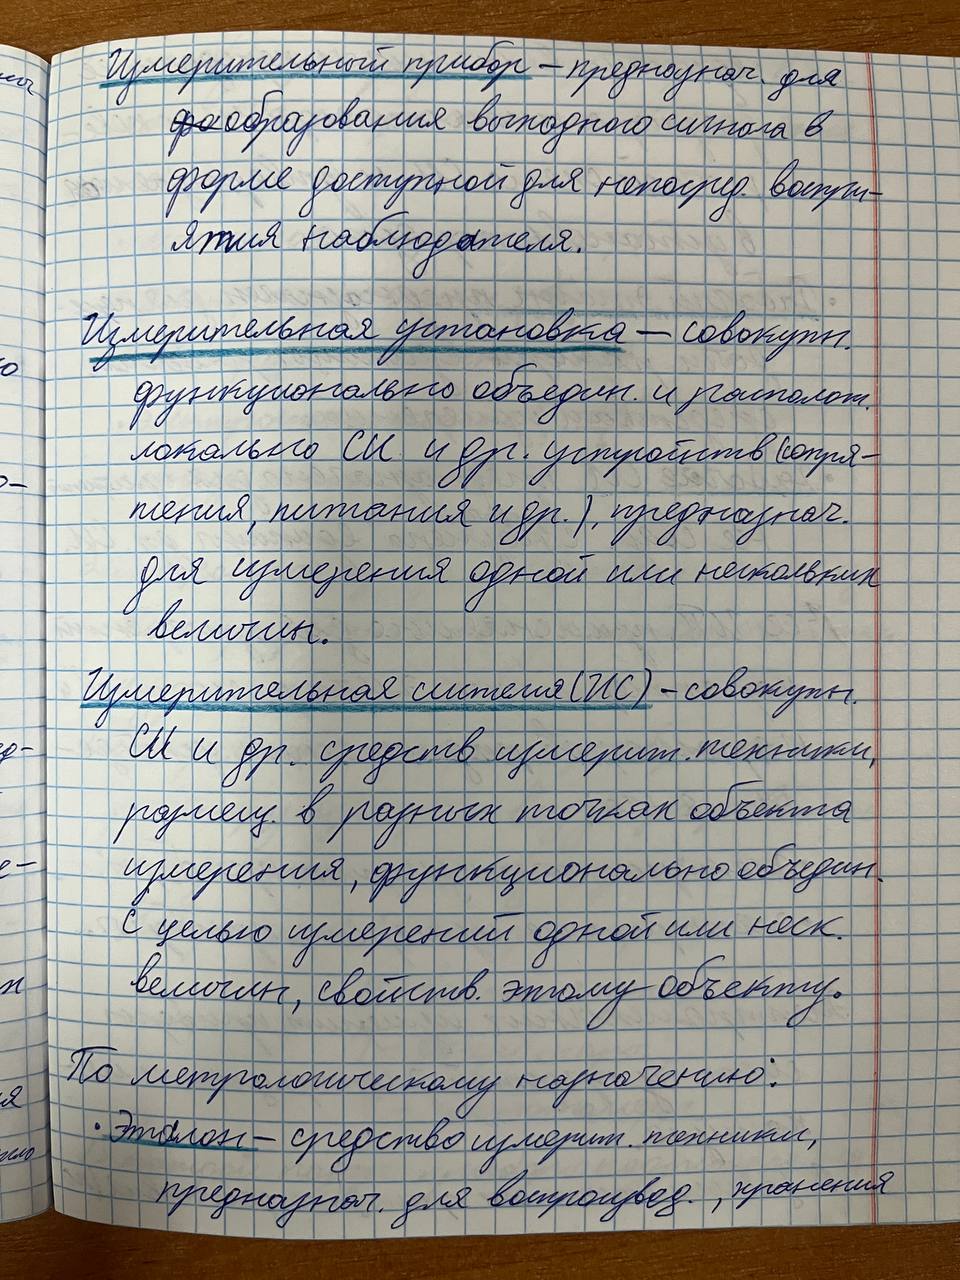 Измерительный прибор – предназнач. для
фаобразования выходного сигнала в
форме доступной для непосред. воспри-
ятия наблюдателя.
Измерительная установка – совокупн.
функционально объедин. и располож.
локально СИ и др. устройств (сопря-
жения, питания и др.), предназнач.
для измерения одной или нескольких
величин.
Измерительная система (ИС) – совокупн.
СИ и др. средств измерит. техники,
размещ. в разных точках объекта
измерения, функционально объедин.
с целью измерений одной или неск.
величин, свойств. этому объекту.
По метрологическому назначению:
• Эталон – средство измерит. техники,
предназнач. для воспроизвод., хранения